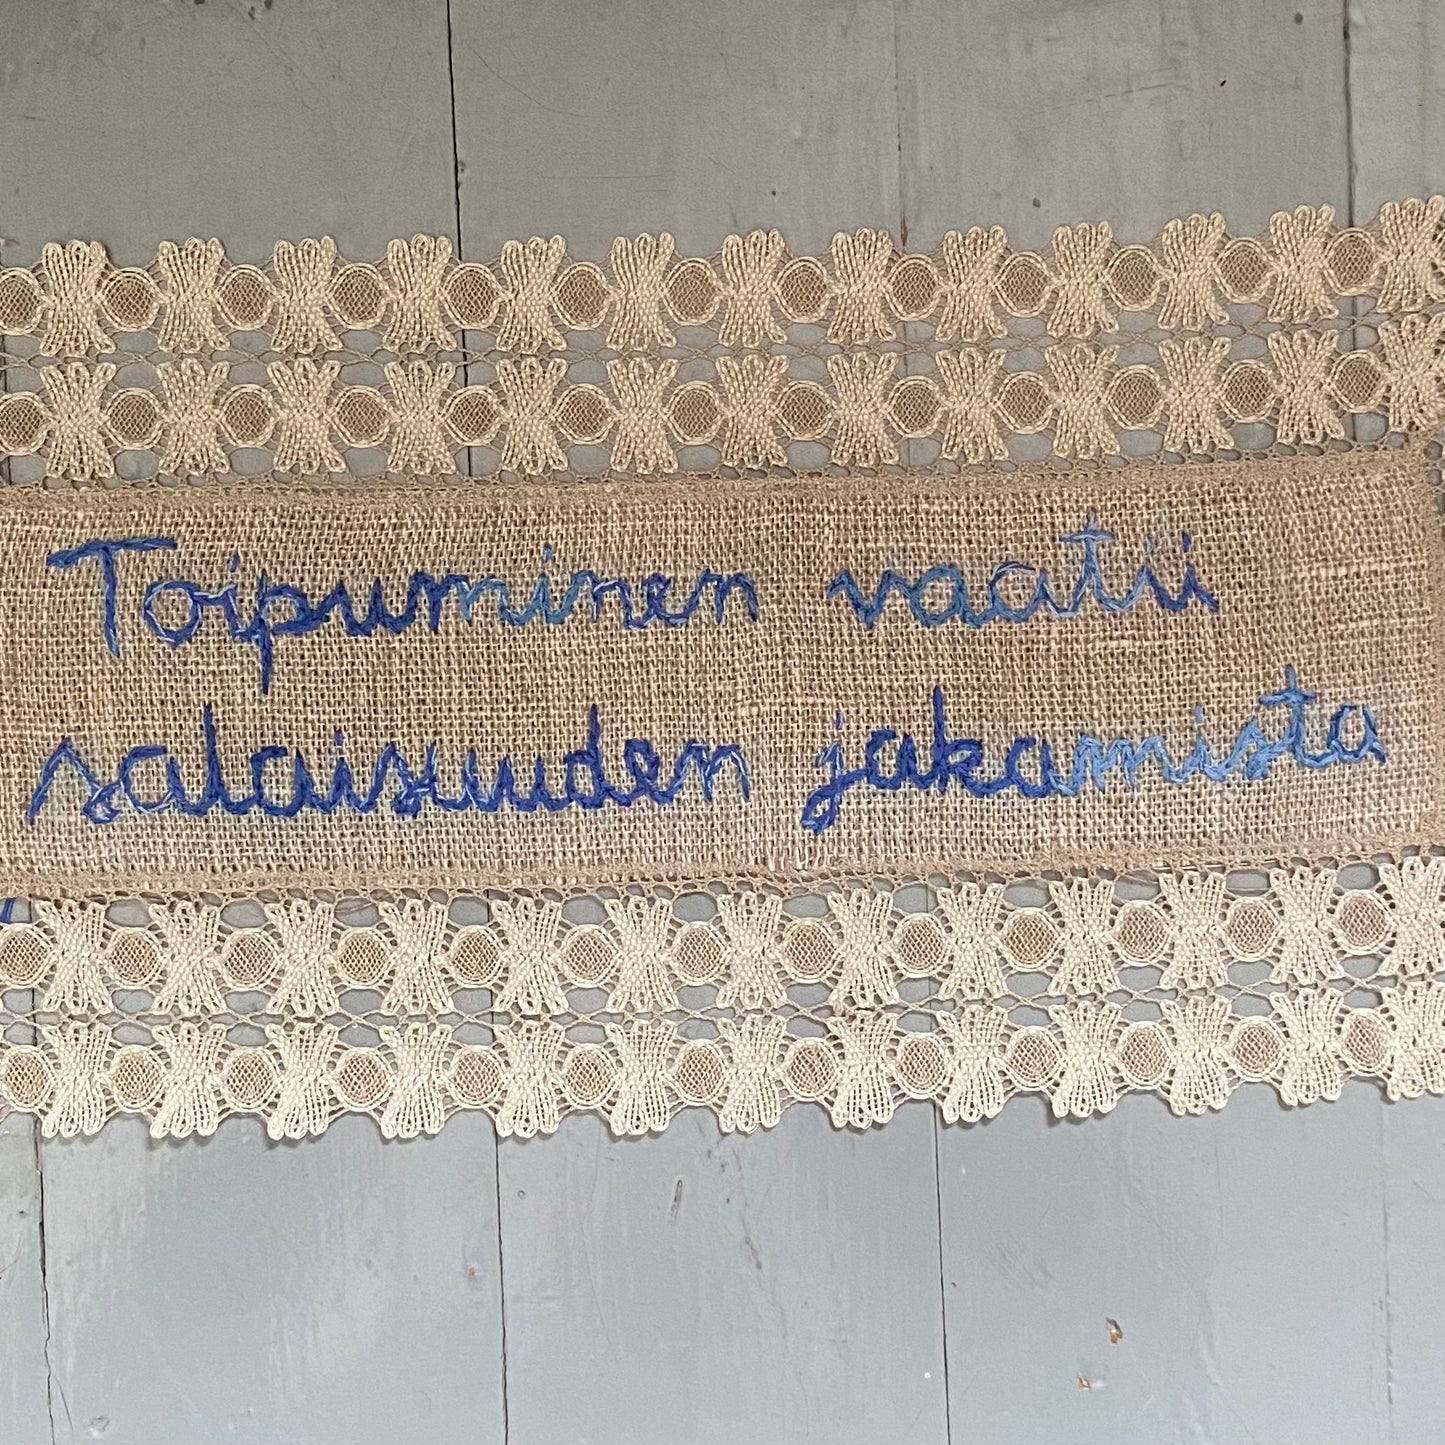 Toipuminen vaatii
salaisuuden jakamista